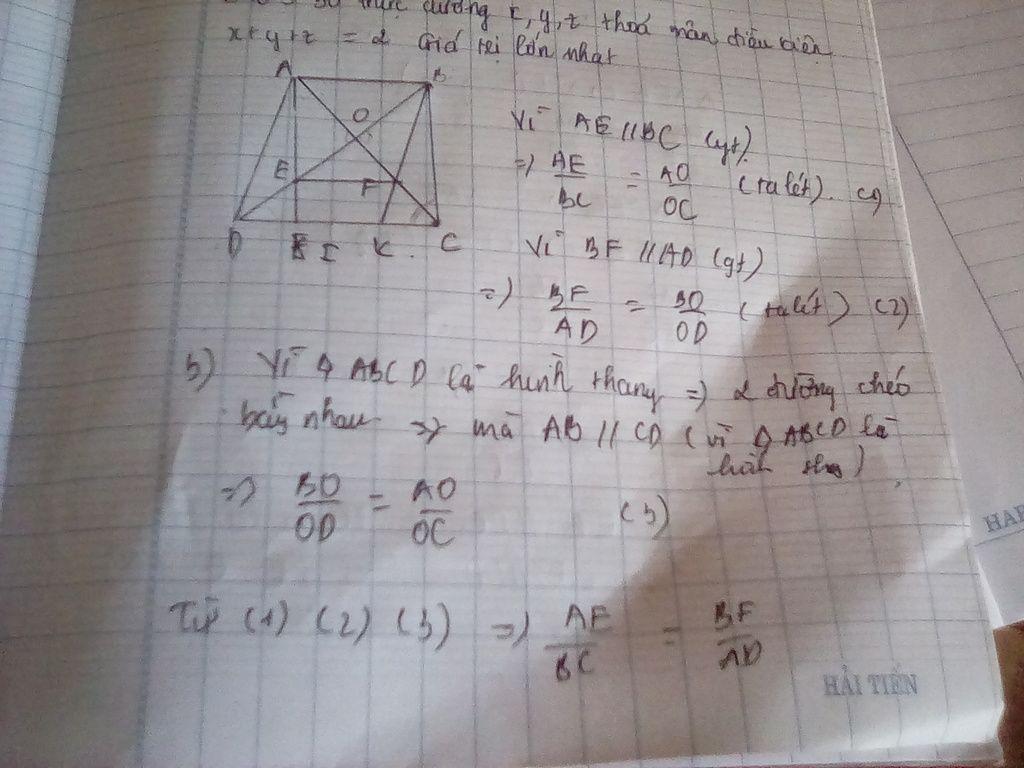 số thực dương x, y, z thoả mãn điều kiện
x+y+z = 2 Giá trị lớn nhất
A
B
O
E
F
D
E I
K
C
Vì AE // BC (gt).
=> AE/BC = AO/OC (ta lét). (1)
Vì BF // AD (gt)
=> BF/AD = BO/OD (ta lét) (2)
b) Vì ◊ ABCD là hình thang => 2 đường chéo
bằng nhau => mà AB // CD (vì ◊ ABCD là
hình thang)
=> BO/OD = AO/OC (3)
Từ (1) (2) (3) => AE/BC = BF/AD
HẢI TIẾN
HẢI